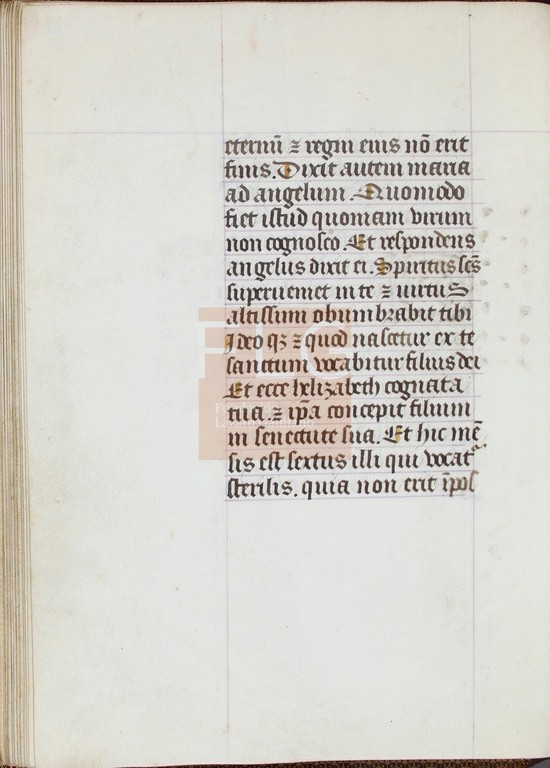 eternū ⁊ regni eius nō erit
finis. Dixit autem maria
ad angelum. Quomodo
fiet istud quoniam virum
non cognosco. Et respondens
angelus dixit ei. Spiritus scs̄
superueniet in te ⁊ uirtus
altissimi obumbrabit tibi
Ideo qꝫ ⁊ quod nascetur ex te
sanctum vocabitur filius dei
Et ecce helizabeth cognata
tua. ⁊ ip̄a concepit filium
in senectute sua. Et hic mē
sis est sextus illi qui vocat᷑
sterilis. quia non erit īpos